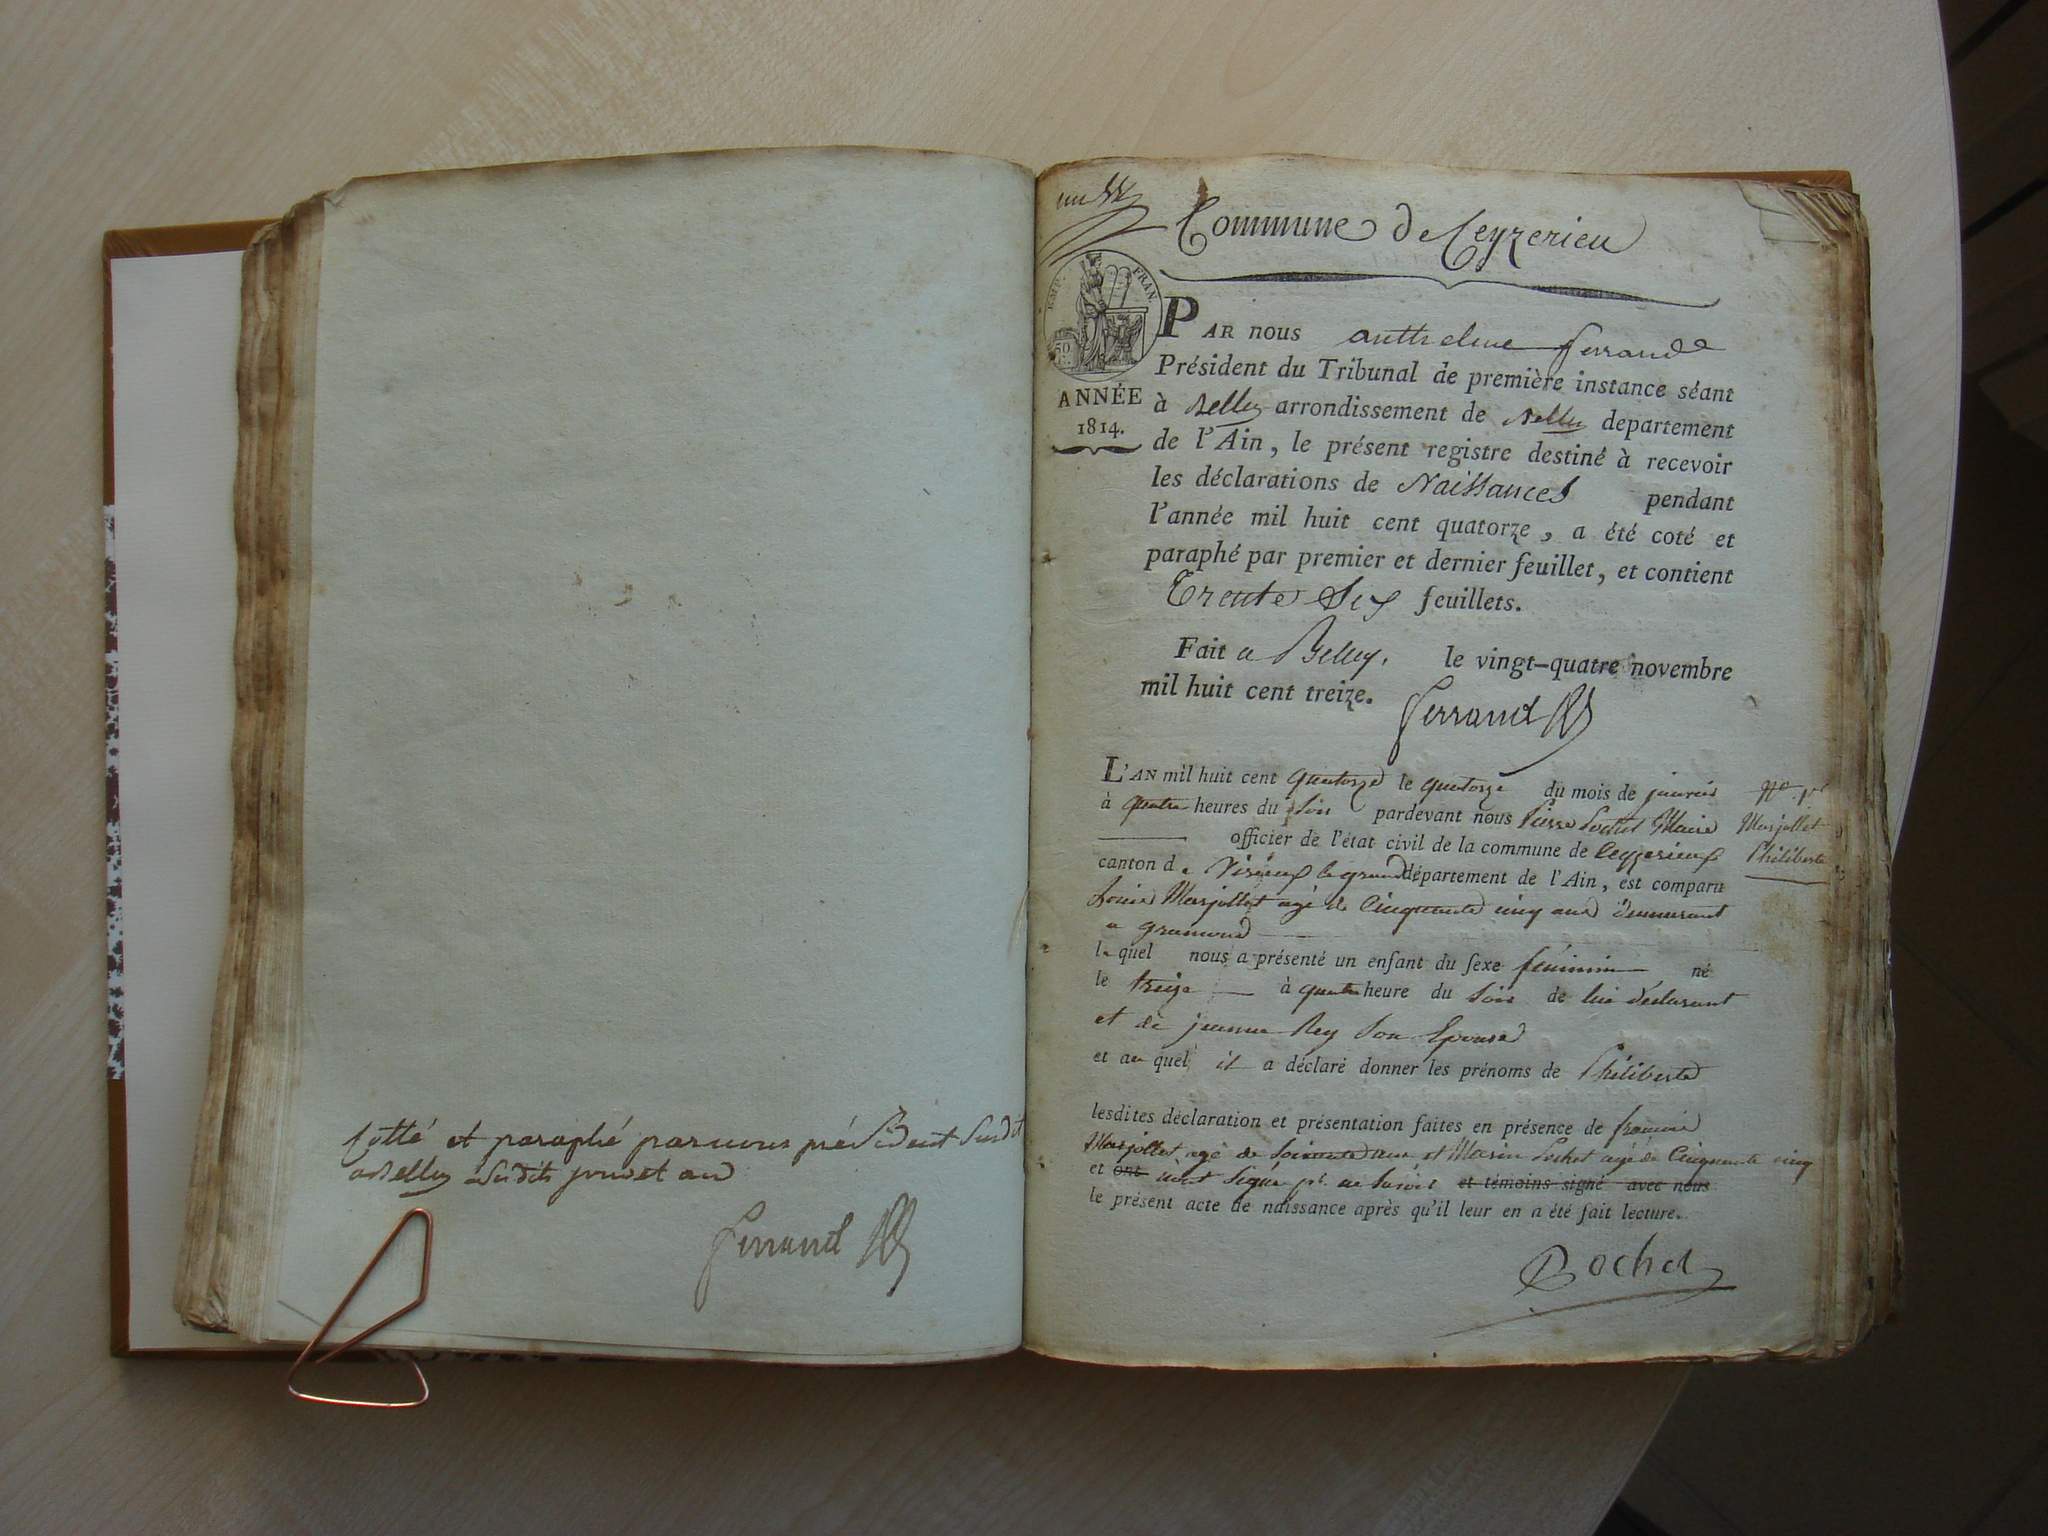 Cotté et paraphé par nous président Susdit
a Belley Susdits jour et an
Ferrand
un
Commune de Ceyzerieu
EMP. FRAN.
50
ANNÉE
1814.
PAR nous anthelme ferrand
Président du Tribunal de première instance séant
à Belley arrondissement de Belley departement
de l'Ain, le présent registre destiné à recevoir
les déclarations de Naissances pendant
l'année mil huit cent quatorze, a été coté et
paraphé par premier et dernier feuillet, et contient
Trente Six feuillets.
Fait a Belley, le vingt-quatre novembre
mil huit cent treize.
Ferrand
L'AN mil huit cent quatorze le quatorze du mois de janvier
à quatre heures du soir pardevant nous Pierre Pochet Maire
officier de l'état civil de la commune de Ceyzerieux
canton de Virieux le grand département de l'Ain, est comparu
Marjollet agé de Cinquante cinq ans demeurant
a
lequel nous a présenté un enfant du sexe féminin né
le treize à quatre heure du soir de lui déclarant
et de jeanne Rey Son Epouse
et au quel il a déclaré donner les prénoms de Philiberte
lesdites déclaration et présentation faites en présence de
Marjollet agé de Soixante ans et Marin Pochet agé de Cinquante cinq
et ont n'ont Signé pr. ne savoir et témoins signé avec nous
le présent acte de naissance après qu'il leur en a été fait lecture.
Pochet
No. 1er
Marjollet
Philiberte